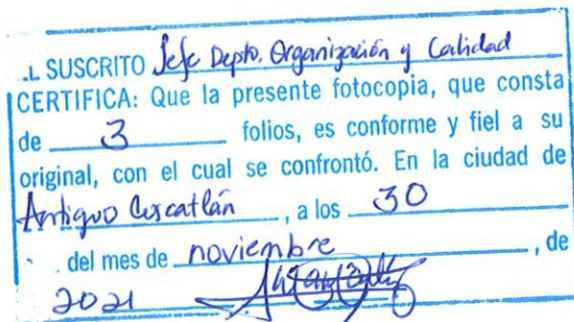 .L SUSCRITO Jefe Depto. Organización y Calidad
CERTIFICA: Que la presente fotocopia, que consta
de 3 folios, es conforme y fiel a su
original, con el cual se confrontó. En la ciudad de
Antiguo Cuscatlán, a los 30
del mes de noviembre, de
2021